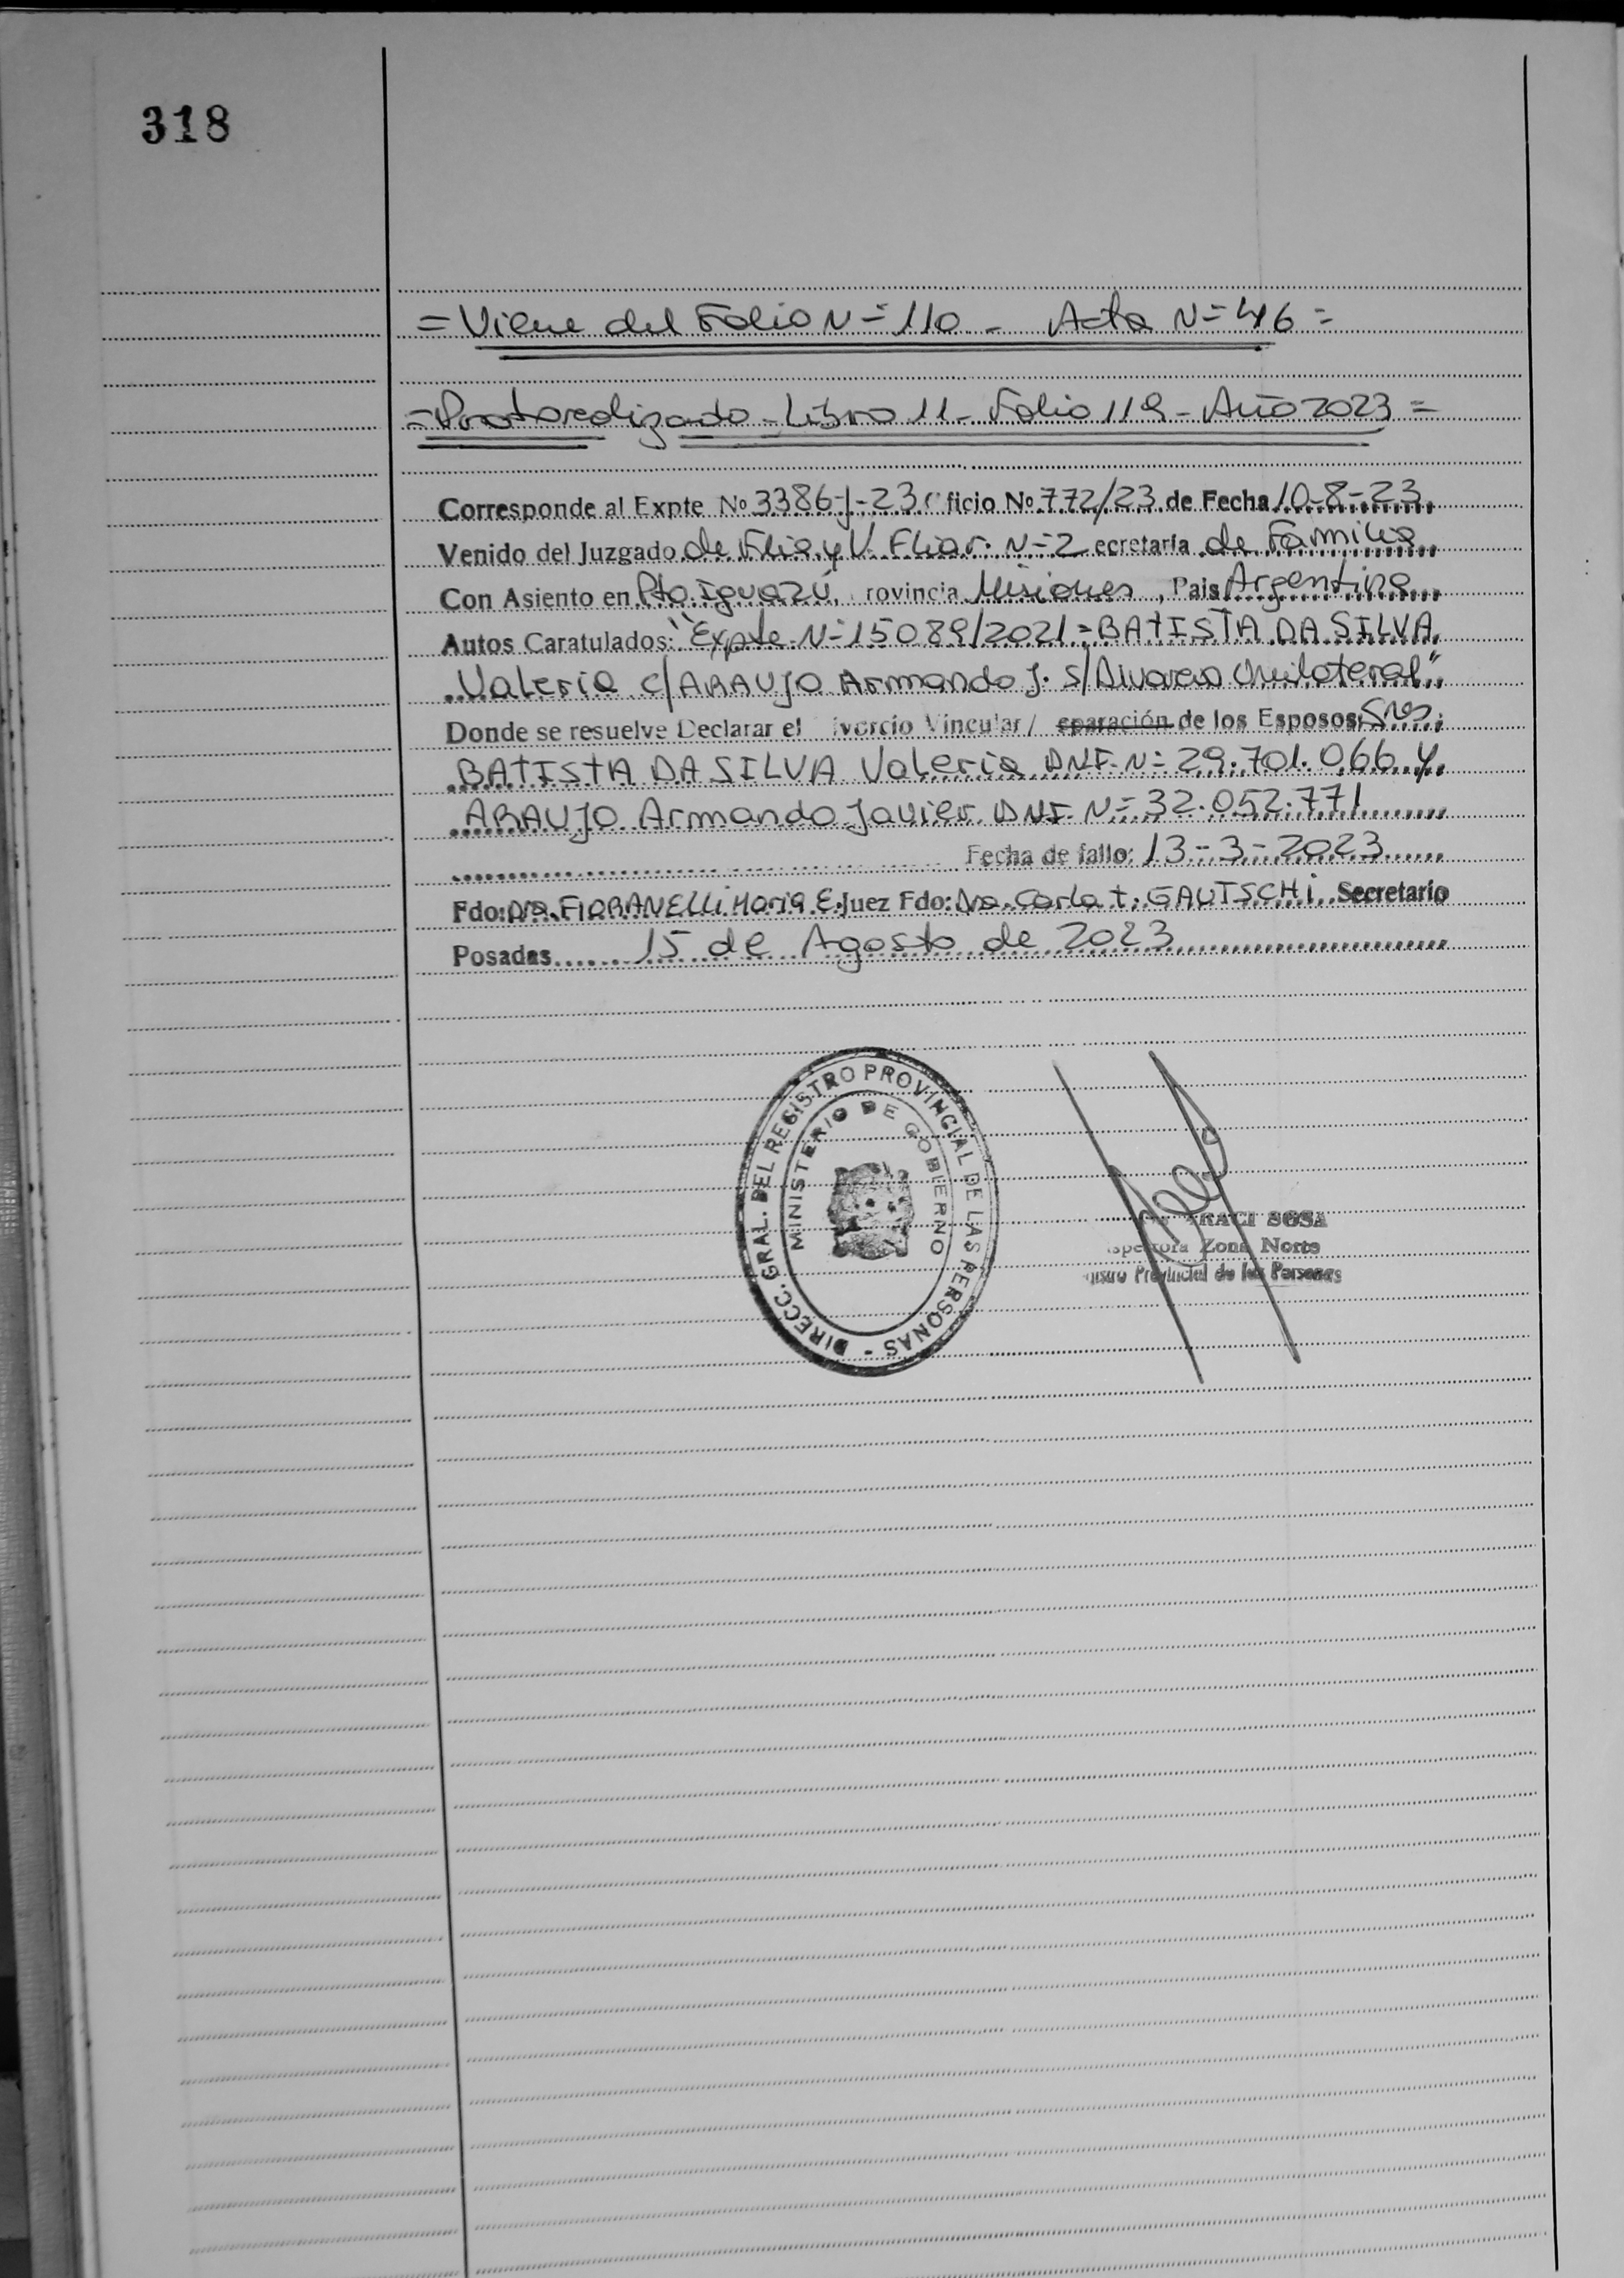 318
= Viene del Folio N= 110 - Acta N= 46 =
= Protocolizado - Libro 11 - Folio 119 - Año 2023 =
Corresponde al Expte Nº 3386-J-23 ficio Nº 772/23 de Fecha 10-8-23
Venido del Juzgado de Flia y V. Fliar. N=2 ecretaría de Familia
Con Asiento en Pto Iguazú, rovincia Misiones, Pais Argentina
Autos Caratulados: "Expte N=15089/2021 = BATISTA DA SILVA
Valeria c/ ARAUJO Armando J. s/ Divorcio Unilateral"
Donde se resuelve Declarar el ivorcio Vincular / eparación de los Esposos: Sres.
BATISTA DA SILVA Valeria DNI N= 29.701.066 y
ARAUJO Armando Javier DNI N= 32.052.771
Fecha de fallo: 13-3-2023
Fdo: Dra. FIORANELLI Maria E. Juez Fdo: Dra. Carla t. GAUTSCHI Secretario
Posadas 15 de Agosto de 2023
DIRECC. GRAL. DEL REGISTRO PROVINCIAL DE LAS PERSONAS -
MINISTERIO DE GOBIERNO
SOSA
Zona Norte
Provincial de las Personas